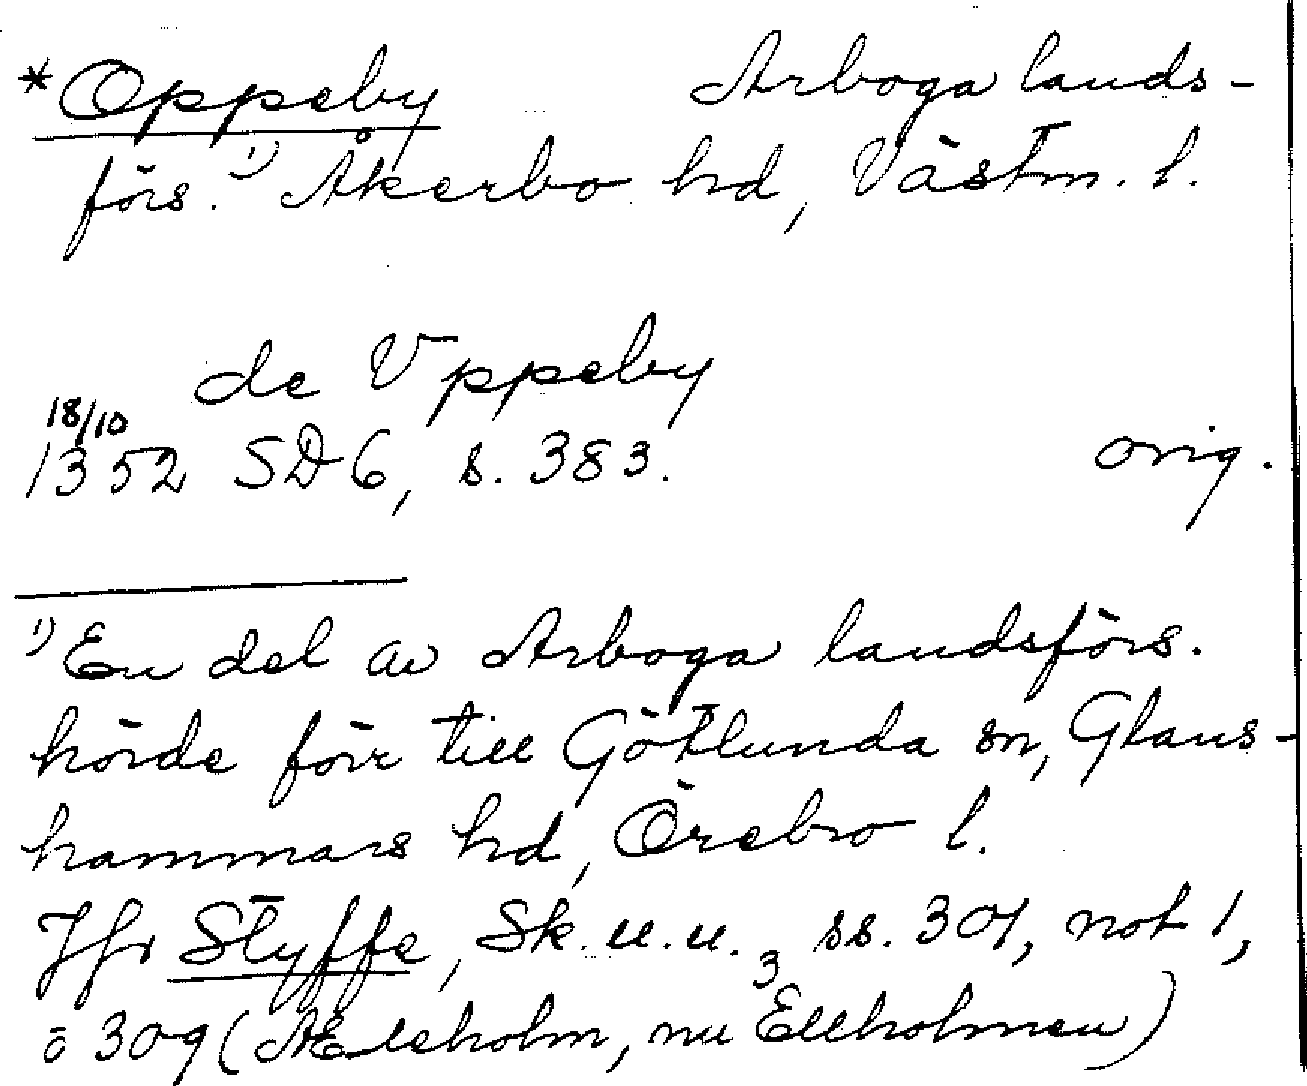 *Oppeby Arboga lands-
förs.¹⁾ Åkerbo hd, Västm. l.
de Vppeby
18/10
1352 SD 6, s. 383. orig.
¹⁾ En del av Arboga landsförs.
hörde förr till Götlunda sn, Glans-
hammars hd, Örebro l.
Jfr Styffe, Sk. u. u.₃ ss. 301, not 1,
o 309 (Ælleholm, nu Ellholmen)